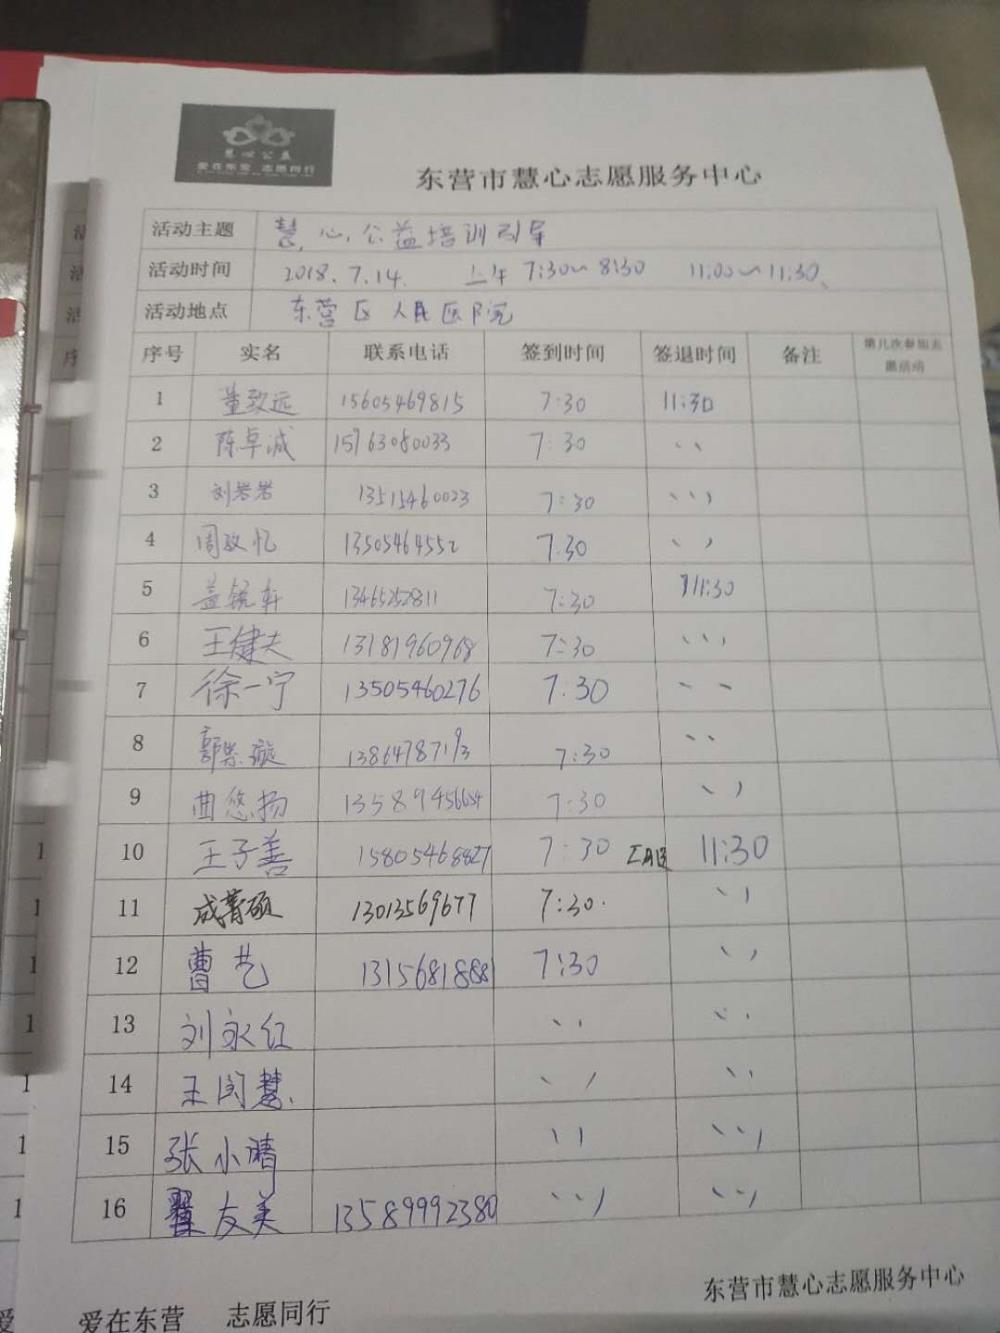 慧心公益
爱在东营 志愿同行
东营市慧心志愿服务中心
活动主题 慧心公益培训引导
活动时间 2018.7.14. 上午 7:30~8:30 11:00~11:30、
活动地点 东营区人民医院
序号 实名 联系电话 签到时间 签退时间 备注 第几次参加志愿活动
1 董致远 15605469815 7:30 11:30
2 陈卓诚 15763080033 7:30 、、
3 刘岩岩 13515460023 7:30 、、、
4 周政忆 13505464552 7.30 、、
5 盖锐轩 13465252811 7:30 11:30
6 王健夫 13181960968 7:30 、、、
7 徐一宁 13505460276 7:30 、、
8 郭崇璇 13864787193 7:30 、、
9 曲悠扬 13589456654 7:30 、、
10 王子善 15805468827 7:30 11:30
11 成菁硕 13013569677 7:30. 、、
12 曹艺 1315681888 7:30 、、
13 刘永红 、、 、、
14 王闵慧. 、、 、、
15 张小晴 、、 、、、
16 翟友美 13589992380 、、、 、、、
东营市慧心志愿服务中心
爱在东营 志愿同行